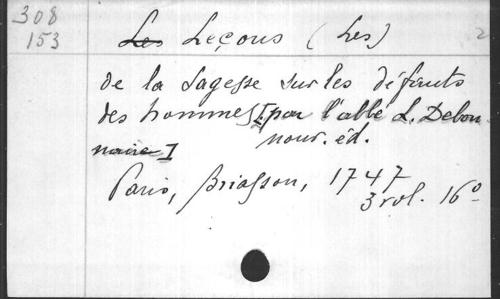 308
153
Les Leçons (Les) 2
de la Sagesse sur les défauts
des hommes [par l'abbé L. Debon
naire]
nouv. éd.
Paris, Briasson, 1747
3 vol. 16°